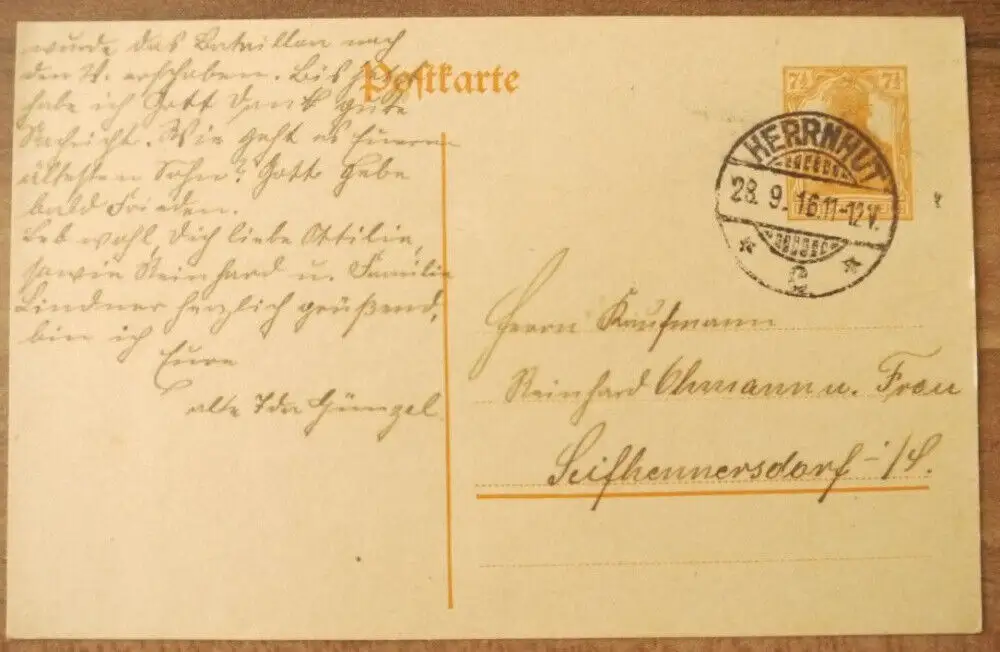 wurde das Bataillon nach
den W. erschoben. Bis jetzt
habe ich Gott Dank gute
Nachricht. Wie geht es Eurem
ältesten Sohn? Gott gebe
bald Frieden.
Leb wohl, Dich liebe Ottilie,
sowie Reinhard u. Familie
Lindner herzlich grüßend,
bin ich
Eure
alte Ida Hünzel.
Postkarte
7½ 7½
HERRNHUT
28. 9. 16. 11-12 V.
* c *
Herrn Kaufmann
Reinhard Ohmann u. Frau
Seifhennersdorf i/S.